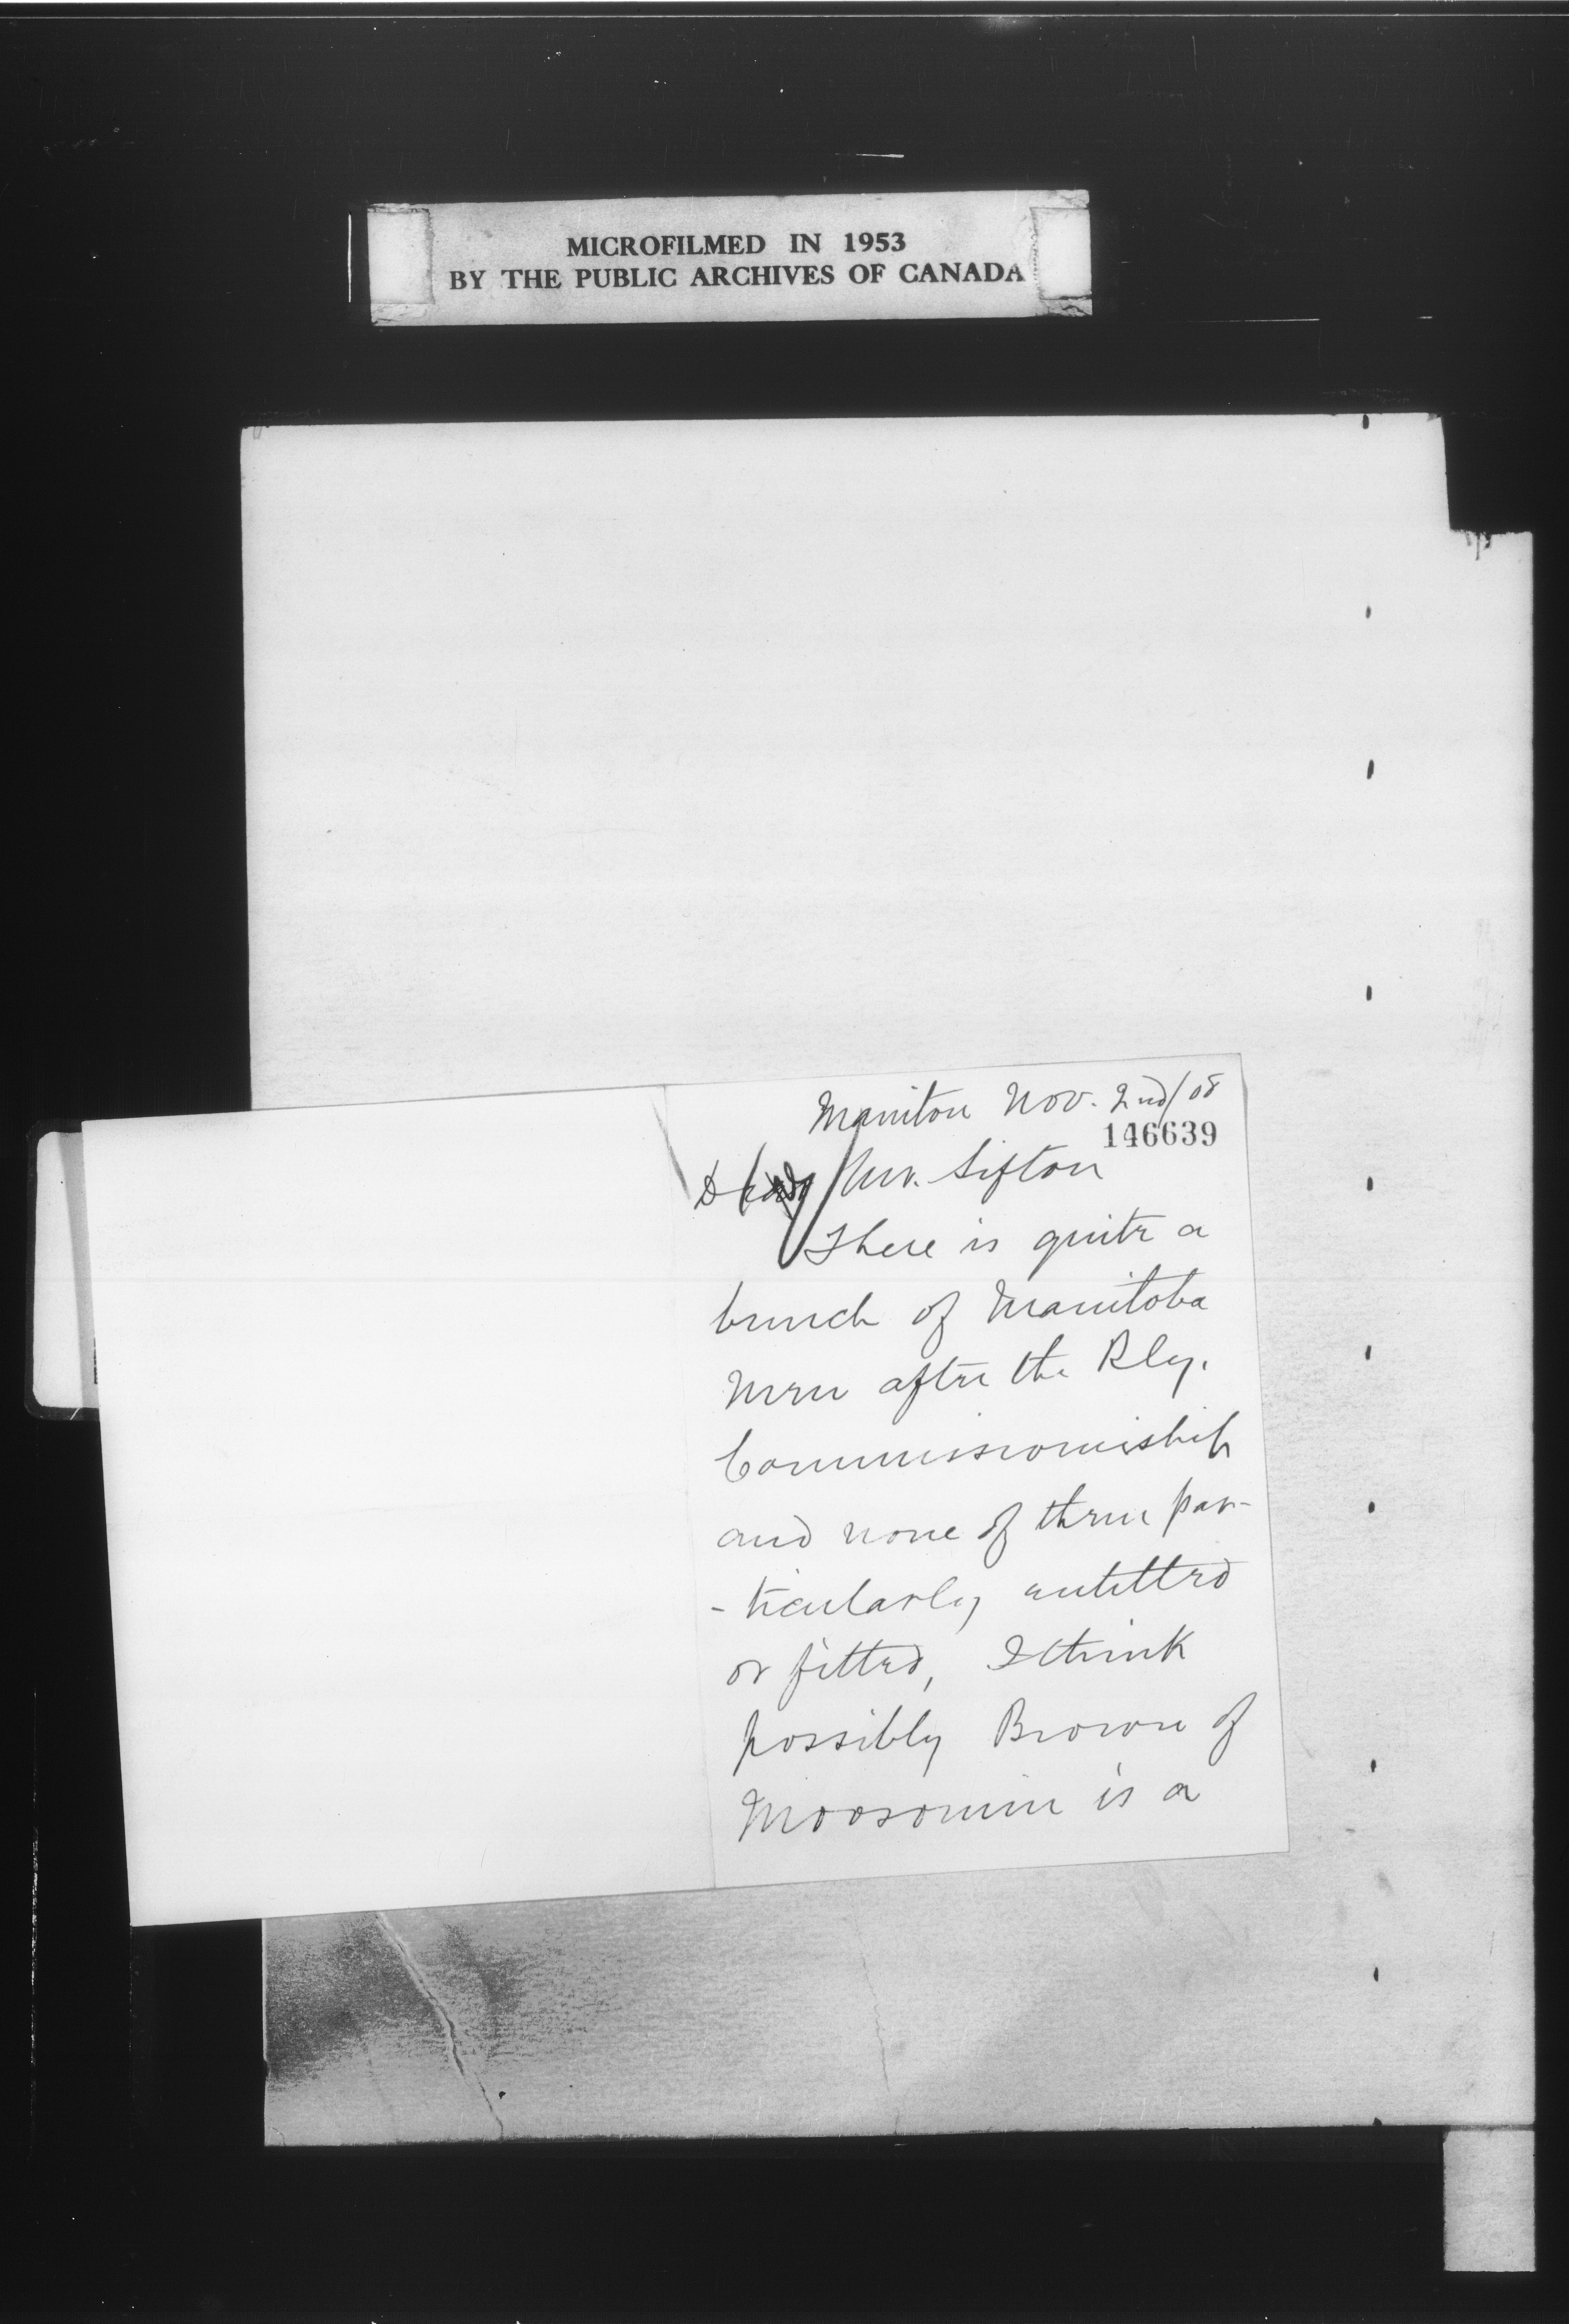 MICROFILMED IN 1953
BY THE PUBLIC ARCHIVES OF CANADA
Manitou Nov. 2nd/08
146639
Dear Mr. Sifton
There is quite a
bunch of Manitoba
men after the Rly.
Commissionership
and none of them par-
-ticularly entitled
or fitted, I think
possibly Brown of
Moosomin is a